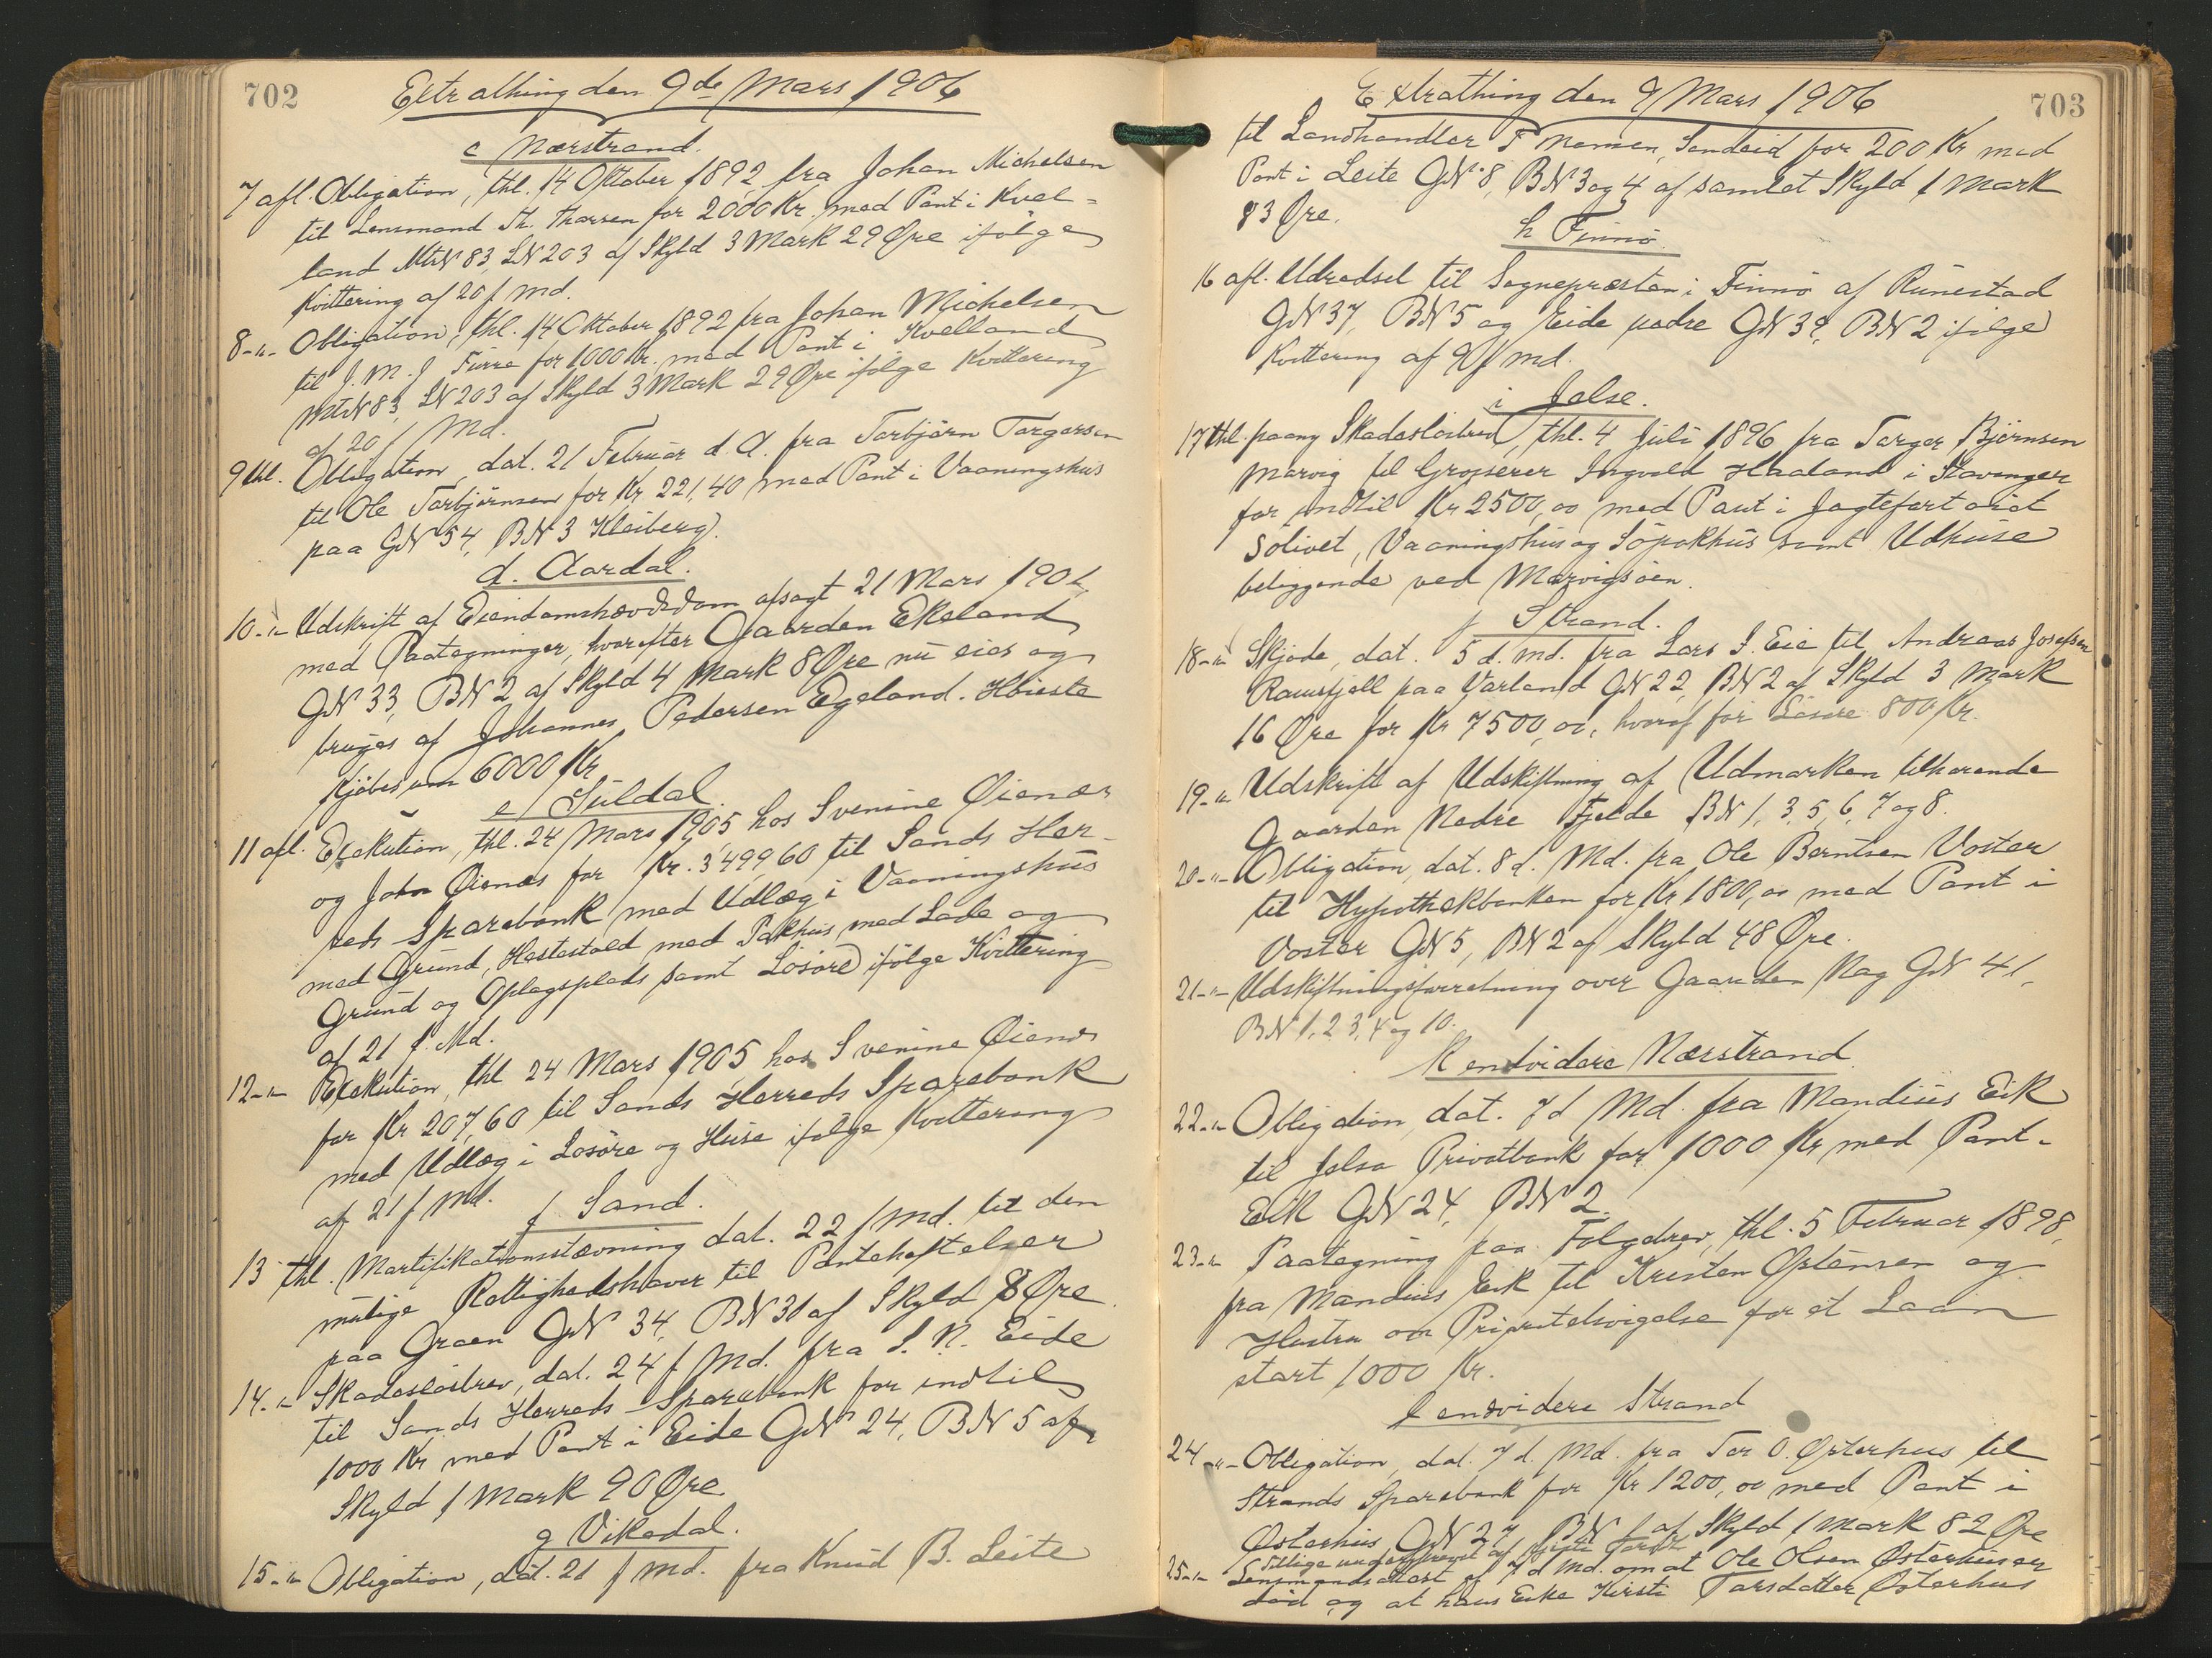 702
Extrathing den 9de Mars 1906
c Nærstrand.
7 afl. Obligation, thl. 14 Oktober 1892 fra Johan Michelsen
til Lensmand Th. Thorsen for 2000 Kr. med Pant i Kvel-
land MtrN 83, LN 203 af Skyld 3 Mark 29 Øre ifølge
Kvittering af 20 f. Md.
8 -"- Obligation, thl. 14 Oktober 1892 fra Johan Michelsen
til J. M. J. Furre for 1000 Kr. med Pant i Kvelland
MtrN 83, LN 203 af Skyld 3 Mark 29 Øre ifølge Kvittering
af 20 f. Md.
9 thl. Obligation, dat. 21 Februar d. A. fra Torbjörn Torgersen
til Ole Torbjörnsen for Kr. 221,40 med Pant i Vaaningshus
paa GN 54, BN 3 Kleiberg.
d. Aardal.
10 -"- Udskrift af Eiendomshævdsdom afsagt 21 Mars
med Paategninger, hvorefter Gaarden Ekeland
GN 33, BN 2 af Skyld 4 Mark 8 Øre nu eies og
bruges af Johannes Pedersen Egeland. Höieste
Kjöbesum 6000 Kr
e/ Suldal.
11 afl. Exekution, thl. 24 Mars 1905 hos Svenine Øienæs
og John Øienæs for Kr. 3499,60 til Sands Her-
reds Sparebank med Udlæg i Vaaningshus
med Grund, Hestestald med Pakhus med Lade og
Grund og Oplagsplads samt Losöre ifölge Kvittering
af 21 f. Md.
12 -"- Exekution, thl 24 Mars 1905 hos Svenine Øienæs
for Kr 207,60 til Sands Herreds Sparebank
med Udlæg i Losöre og Huse ifølge Kvittering
af 21 f. Md.
f Sand.
13 thl. Mortifikationsstævning dat. 22 f. Md. til den
mulige Rettighedshaver til Panteheftelser
paa Groen GN 34, BN 31 af Skyld 8 Øre.
14 -"- Skadesløsbrev, dat. 24 f. Md. fra S. N. Eide
til Sands Herreds Sparebank for indtil
1000 Kr med Pant i Eide GN 24, BN 5 af
Skyld 1 Mark 90 Øre
g Vikedal.
15 -"- Obligation, dat. 21 f. Md. fra Knud B. Leite
703
Extrathing den 9/ Mars 1906
til Landhandler Nensen, Sandeid for 200 Kr med
Pant i Leite GN 8, BN 3 og 4 af samlet Skyld 1 Mark
83 Øre.
h Finnö.
16 afl. Udredsel til Sognepræsten i Finnö af Runestad
GN 37, BN 5 og Eide nedre GN 39, BN 2 ifölge
Kvittering af 9/ f. Md.
i Jelse.
17 thl. paany Skadesløsbrev, thl. 4 Juli 1896 fra Torger Björnsen
Marvig til Grosserer Ingvald Haaland i Stavanger
for indtil Kr 2500,00 med Pant i Jagtefartøiet
Solivet, Vaaningshus og Söpakhus samt Udhuse
beliggende ved Marvigsöen.
j Strand.
18 -"- Skjöde, dat. 5 d. Md. fra Lars I. Eie til Andreas Josefsen
Ramsfjell paa Varland GN 22, BN 2 af Skyld 3 Mark
16 Øre for Kr 7500,00, hvoraf for Losöre 800 Kr.
19 -"- Udskrift af Udskiftning af Udmarken tilhørende
Gaarden Nedre Fjelde BN 1, 3, 5, 6, 7 og 8.
20 -"- Obligation, dat. 8 d. Md. fra Ole Berntsen Voster
til Hypothekbanken for Kr 1800,00 med Pant i
Voster GN 5, BN 2 af Skyld 48 Øre.
21 -"- Udskiftningsforretning over Gaarden Nag GN 41,
BN 1, 2, 3, 4 og 10.
K endvidere Nærstrand.
22 -"- Obligation, dat. 7 d Md. fra Mandius Eik
til Jelsa Privatbank for 1000 Kr med Pant -
Eik GN 24, BN 2.
23 -"- Paategning paa Folgdrev, thl. 5 Februar 1898,
fra Mandius Eik til Kristen Østensen og
Hustru om Prioritetsvigelse for et Laan
stort 1000 Kr.
l endvidere Strand
24 -"- Obligation, dat. 7 d. Md. fra Tor O. Østerhus til
Strands Sparebank for Kr 1200,00 med Pant i
Østerhus, GN 27, BN 1 af Skyld 1 Mark 82 Øre
Tillige underskrevet af
25 -"- Lensmandsattest af 7 d Md. om at Ole Olsen Østerhus er
död og at hans Enke Kirsti Torsdatter Østerhus